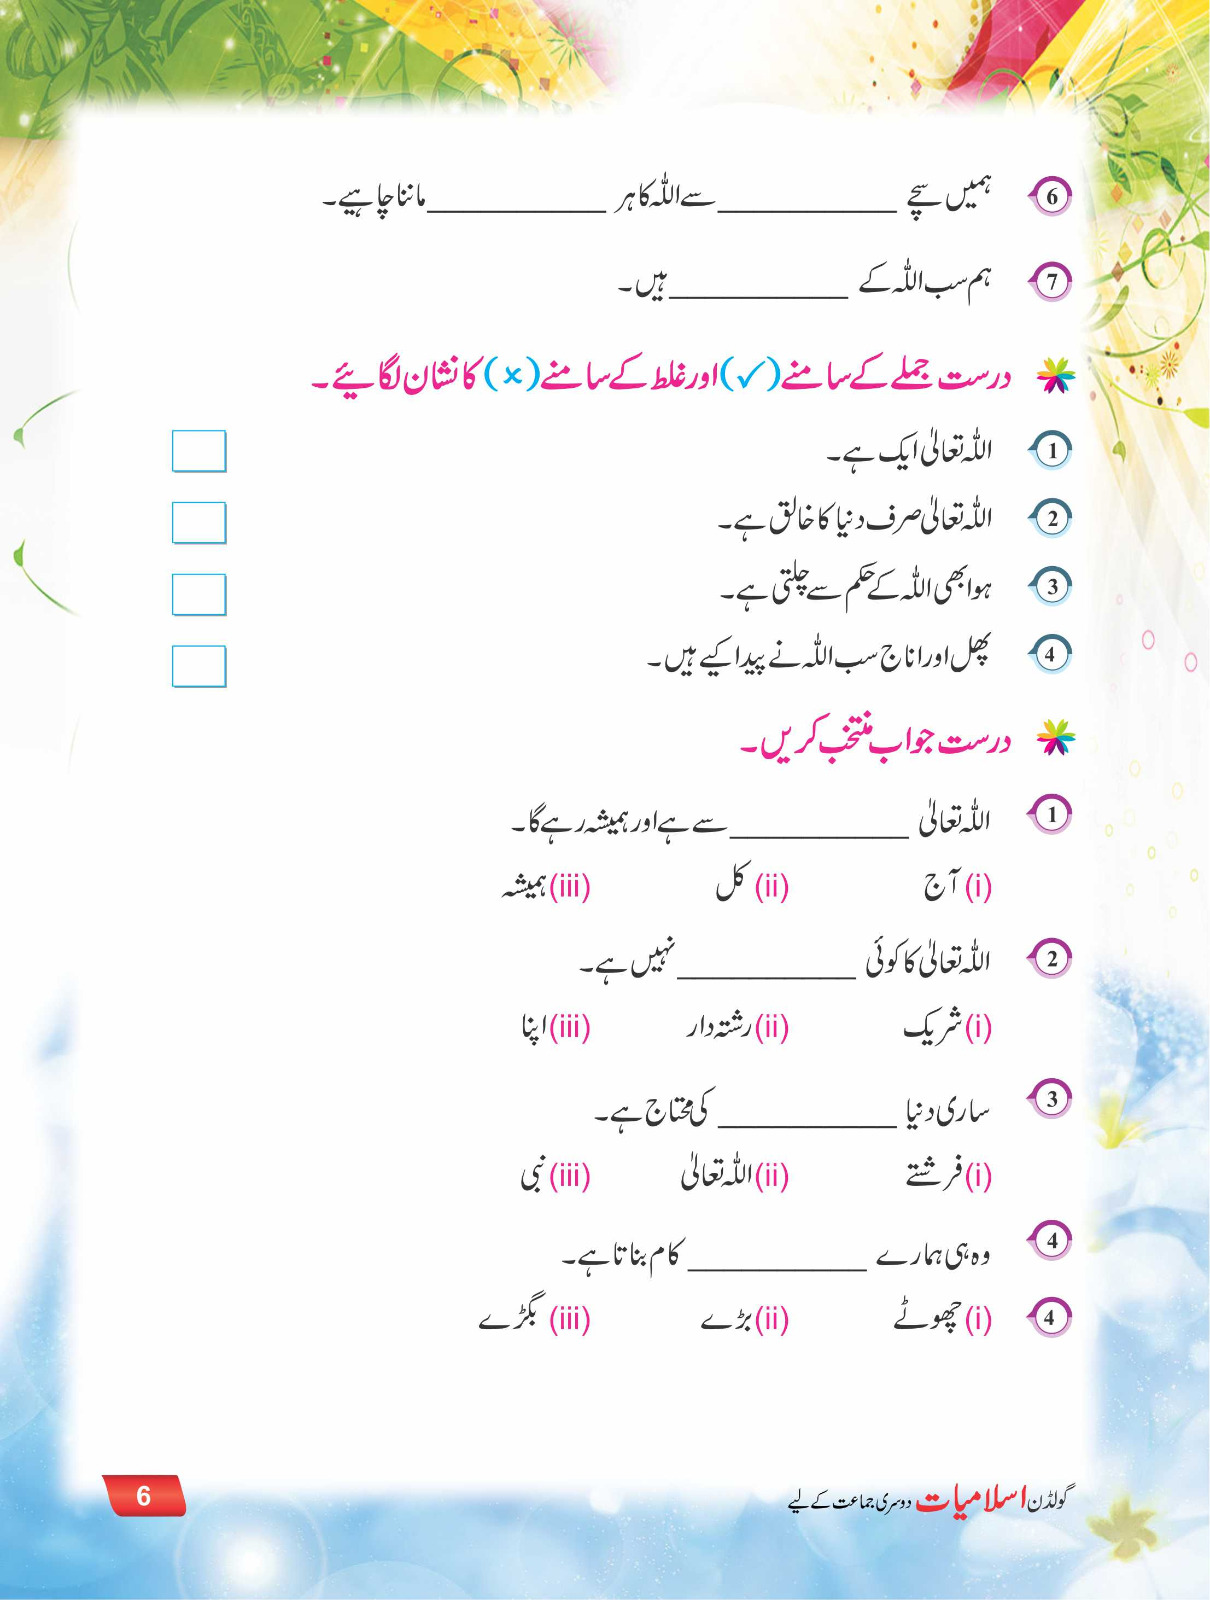 6 ہمیں سچے ____________ سے اللہ کا ہر ____________ ماننا چاہیے۔
7 ہم سب اللہ کے ____________ ہیں۔
درست جملے کے سامنے (✓) اور غلط کے سامنے (×) کا نشان لگائیے۔
1 اللہ تعالیٰ ایک ہے۔
2 اللہ تعالیٰ صرف دنیا کا خالق ہے۔
3 ہوا بھی اللہ کے حکم سے چلتی ہے۔
4 پھل اور اناج سب اللہ نے پیدا کیے ہیں۔
درست جواب منتخب کریں۔
1 اللہ تعالیٰ ____________ سے ہے اور ہمیشہ رہے گا۔
(i) آج (ii) کل (iii) ہمیشہ
2 اللہ تعالیٰ کا کوئی ____________ نہیں ہے۔
(i) شریک (ii) رشتہ دار (iii) اپنا
3 ساری دنیا ____________ کی محتاج ہے۔
(i) فرشتے (ii) اللہ تعالیٰ (iii) نبی
4 وہ ہی ہمارے ____________ کام بناتا ہے۔
4 (i) چھوٹے (ii) بڑے (iii) بگڑے
گولڈن اسلامیات دوسری جماعت کے لیے
6